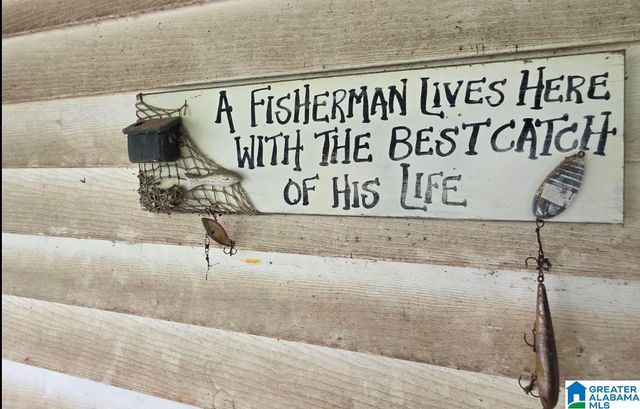 A FISHERMAN LIVES HERE
WITH THE BEST CATCH
OF HIS LIFE
GREATER
ALABAMA
MLS